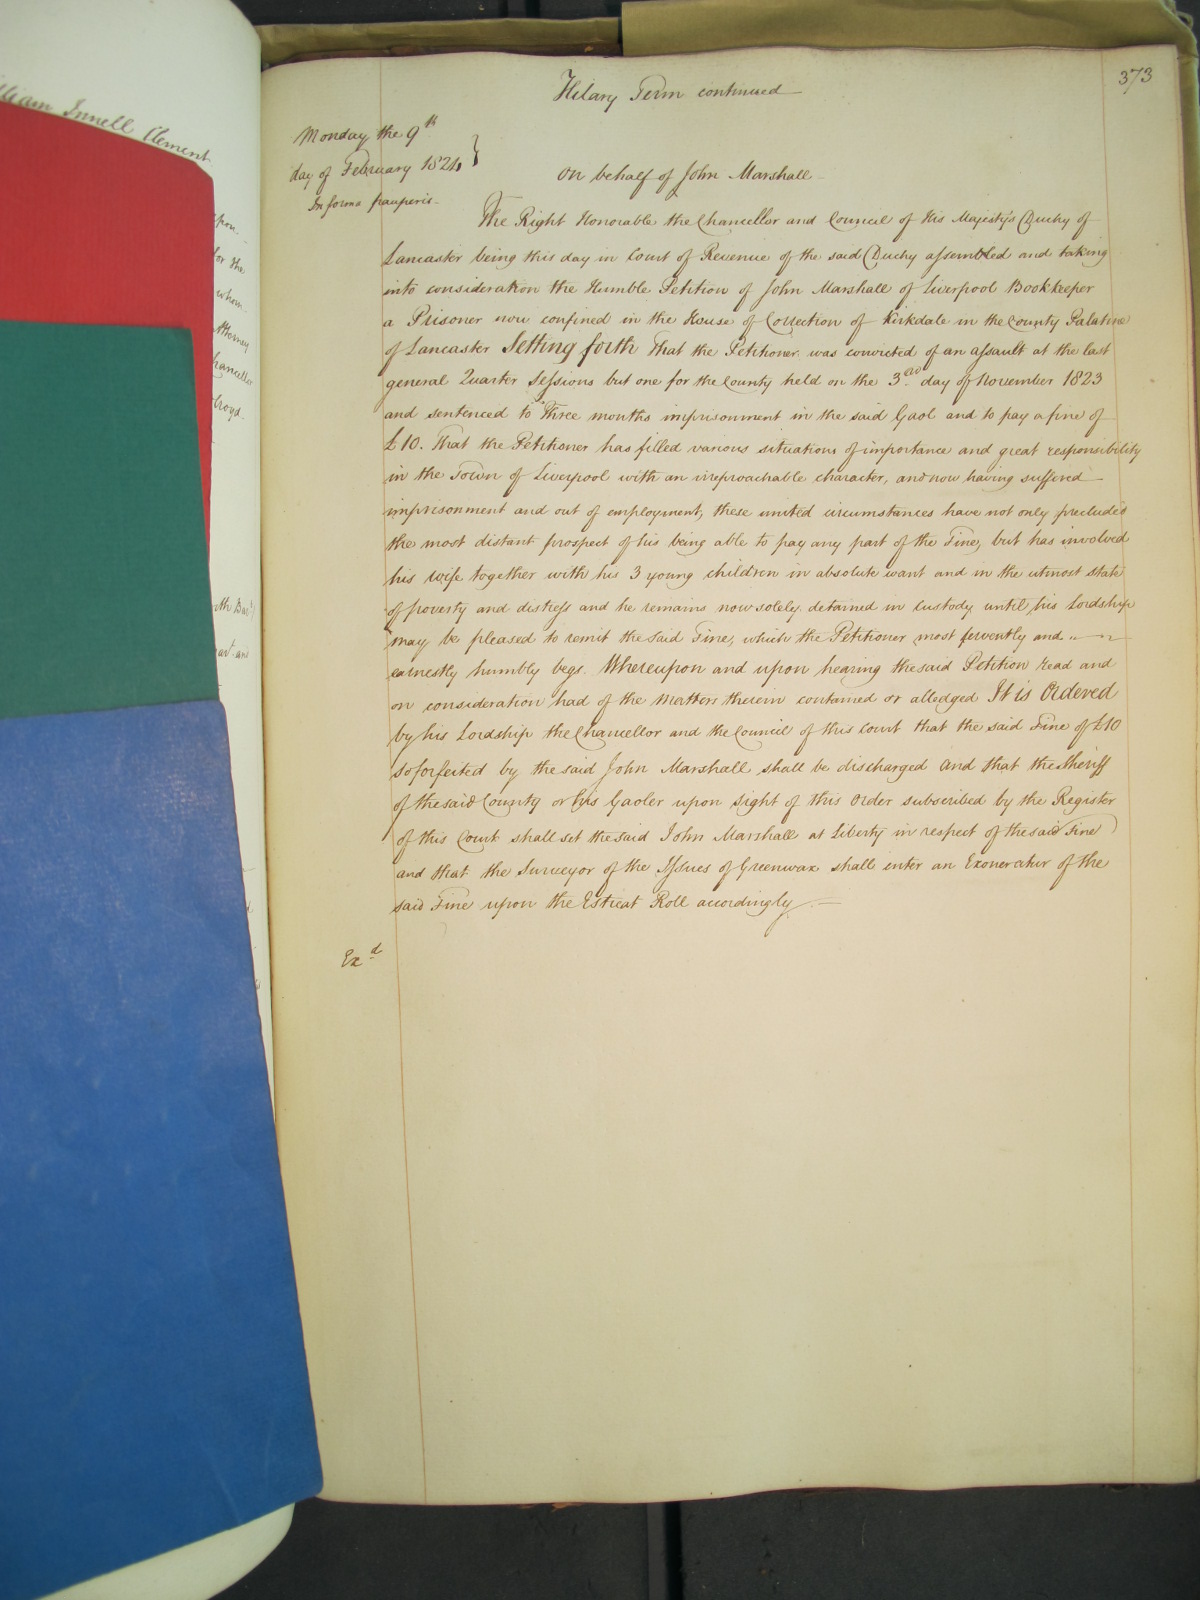 373
Hilary Term continued
Monday the 9th
day of February 1824
In forma pauperis
On behalf of John Marshall
The Right Honorable the Chancellor and Council of His Majesty's Duchy of
Lancaster being this day in Court of Revenue of the said Duchy assembled and taking
into consideration the Humble Petition of John Marshall of Liverpool Bookkeeper
a Prisoner now confined in the House of Correction of Kirkdale in the County Palatine
of Lancaster Setting forth That the Petitioner was convicted of an assault at the last
general Quarter Sessions but one for the County held on the 3rd day of November 1823
and sentenced to Three months imprisonment in the said Gaol and to pay a fine of
£10. That the Petitioner has filled various situations of importance and great responsibility
in the Town of Liverpool with an irreproachable character, and now having suffered
imprisonment and out of employment, these united circumstances have not only precluded
the most distant prospect of his being able to pay any part of the Fine, but has involved
his wife together with his 3 young children in absolute want and in the utmost state
of poverty and distress and he remains now solely detained in custody until his Lordship
may be pleased to remit the said Fine, which the Petitioner most fervently and
earnestly humbly begs. Whereupon and upon hearing the said Petition read and
on consideration had of the Matters therein contained or alledged It is Ordered
by his Lordship the Chancellor and the Council of this Court that the said Fine of £10
so forfeited by the said John Marshall shall be discharged And that the Sheriff
of the said County or his Gaoler upon sight of this Order subscribed by the Register
of this Court shall set the said John Marshall at Liberty in respect of the said Fine
and that the Surveyor of the Issues of Greenwax shall enter an Exoneratur of the
said Fine upon the Estreat Roll accordingly
Exd
Innell Clement
for the
whom
Attorney
Chancellor